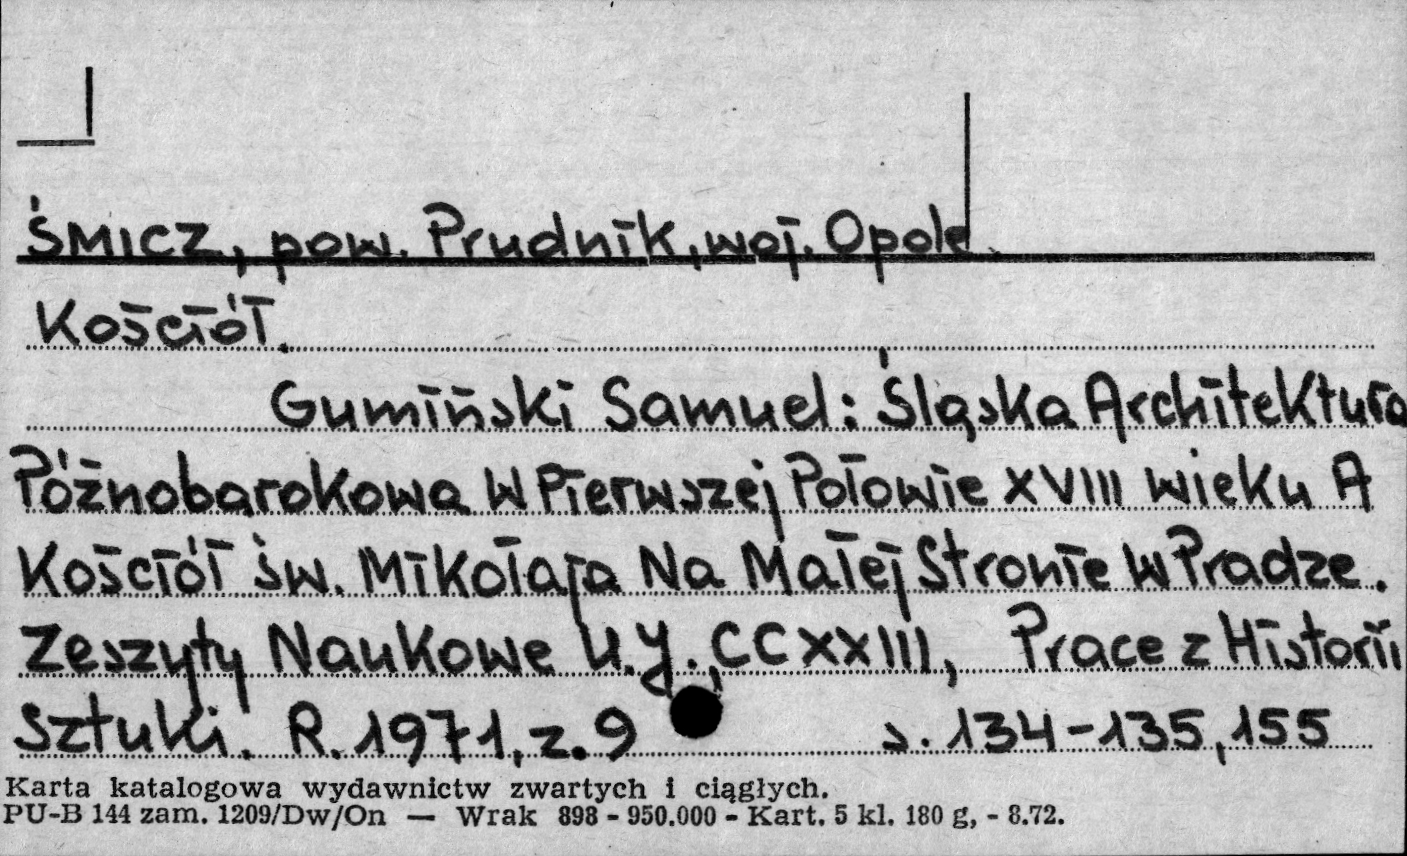 ŚMICZ, pow. Prudnik, woj. Opole.
Kościół.
Gumiński Samuel: Śląska Architektura
Późnobarokowa W Pierwszej Połowie XVIII wieku A
Kościół św. Mikołaja Na Małej Stronie W Pradze.
Zeszyty Naukowe U.J., CCXXIII, Prace z Historii
Sztuki. R. 1971, z. 9 s. 134-135, 155
Karta katalogowa wydawnictw zwartych i ciągłych.
PU-B 144 zam. 1209/Dw/On — Wrak 898 - 950.000 - Kart. 5 kl. 180 g, - 8.72.